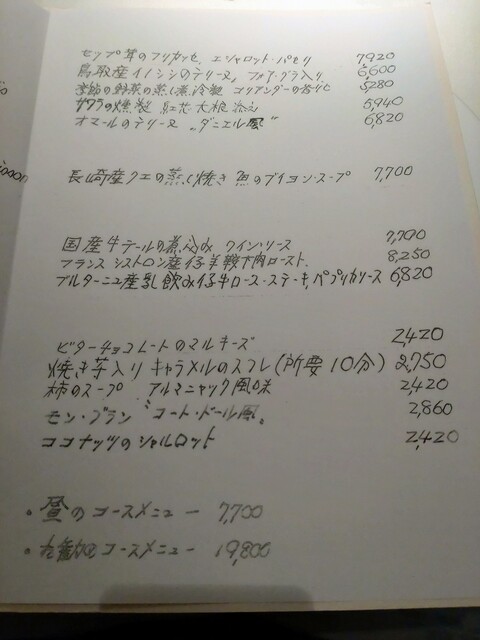 セップ茸のフリカッセ、エシャロット・パセリ 7,920
鳥取産イノシシのテリーヌ、フォア・グラ入り 6,600
季節の野菜の蒸し煮冷製 コリアンダーの香りで 5,280
サワラの燻製 紅芯大根添え 5,940
オマールのテリーヌ „ダニエル風" 6,820
長崎産クエの蒸し焼き 魚のブイヨン・スープ 7,700
国産牛テールの煮込み ワイン・ソース 7,700
フランス シストロン産仔羊鞍下肉ロースト 8,250
ブルターニュ産乳飲み仔牛ロース・ステーキ、パプリカソース 6,820
ビターチョコレートのマルキーズ 2,420
焼き芋入り キャラメルのスフレ(所要10分) 2,750
柿のスープ アルマニャック風味 2,420
モン・ブラン 〝コート・ドール風〟 2,860
ココナッツのシャルロット 2,420
・昼のコースメニュー 7,700
・コースメニュー 19,800